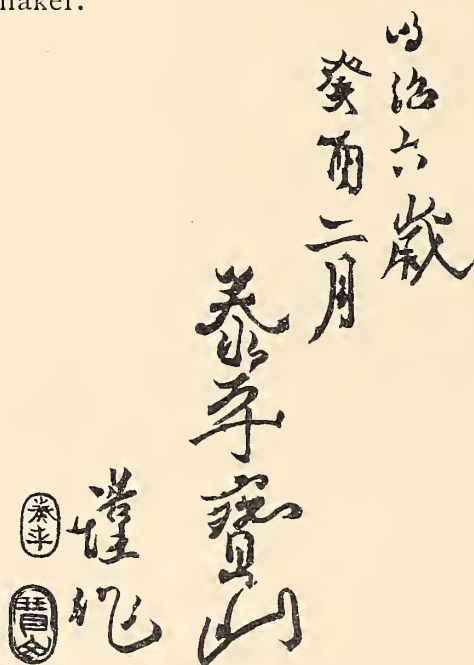 maker.
明治六歳
癸酉二月
泰平寳山
謹作
泰平
寳山